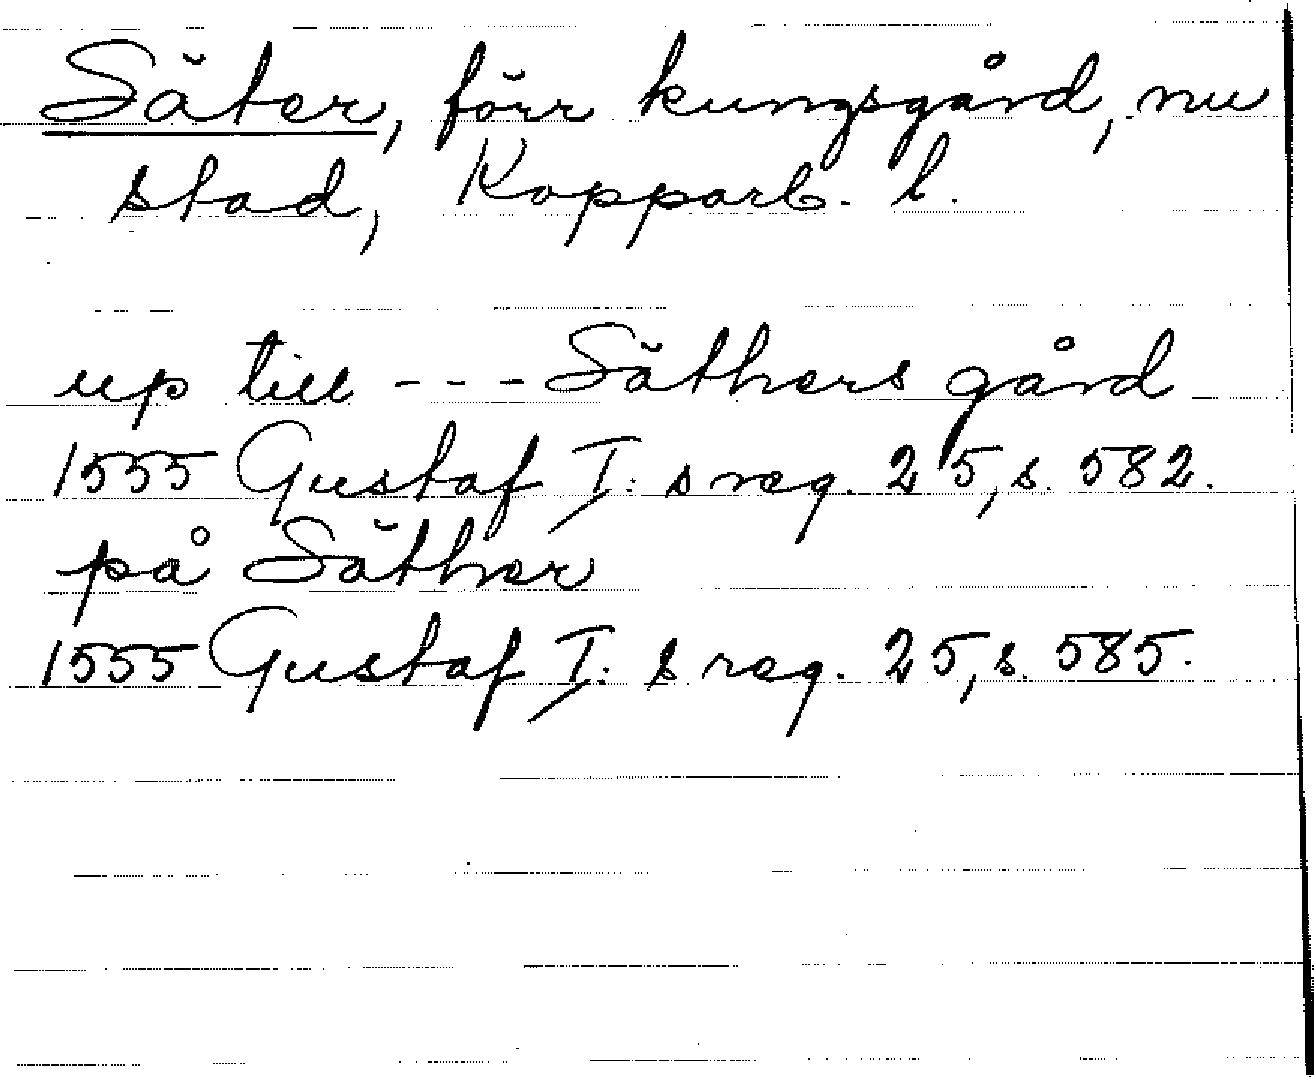 Säter, förr kungsgård, nu
stad, Kopparb. l.
up till --- Säthers gård
1555 Gustaf I: s reg. 25, s. 582.
på Säther
1555 Gustaf I: s reg. 25, s. 585.